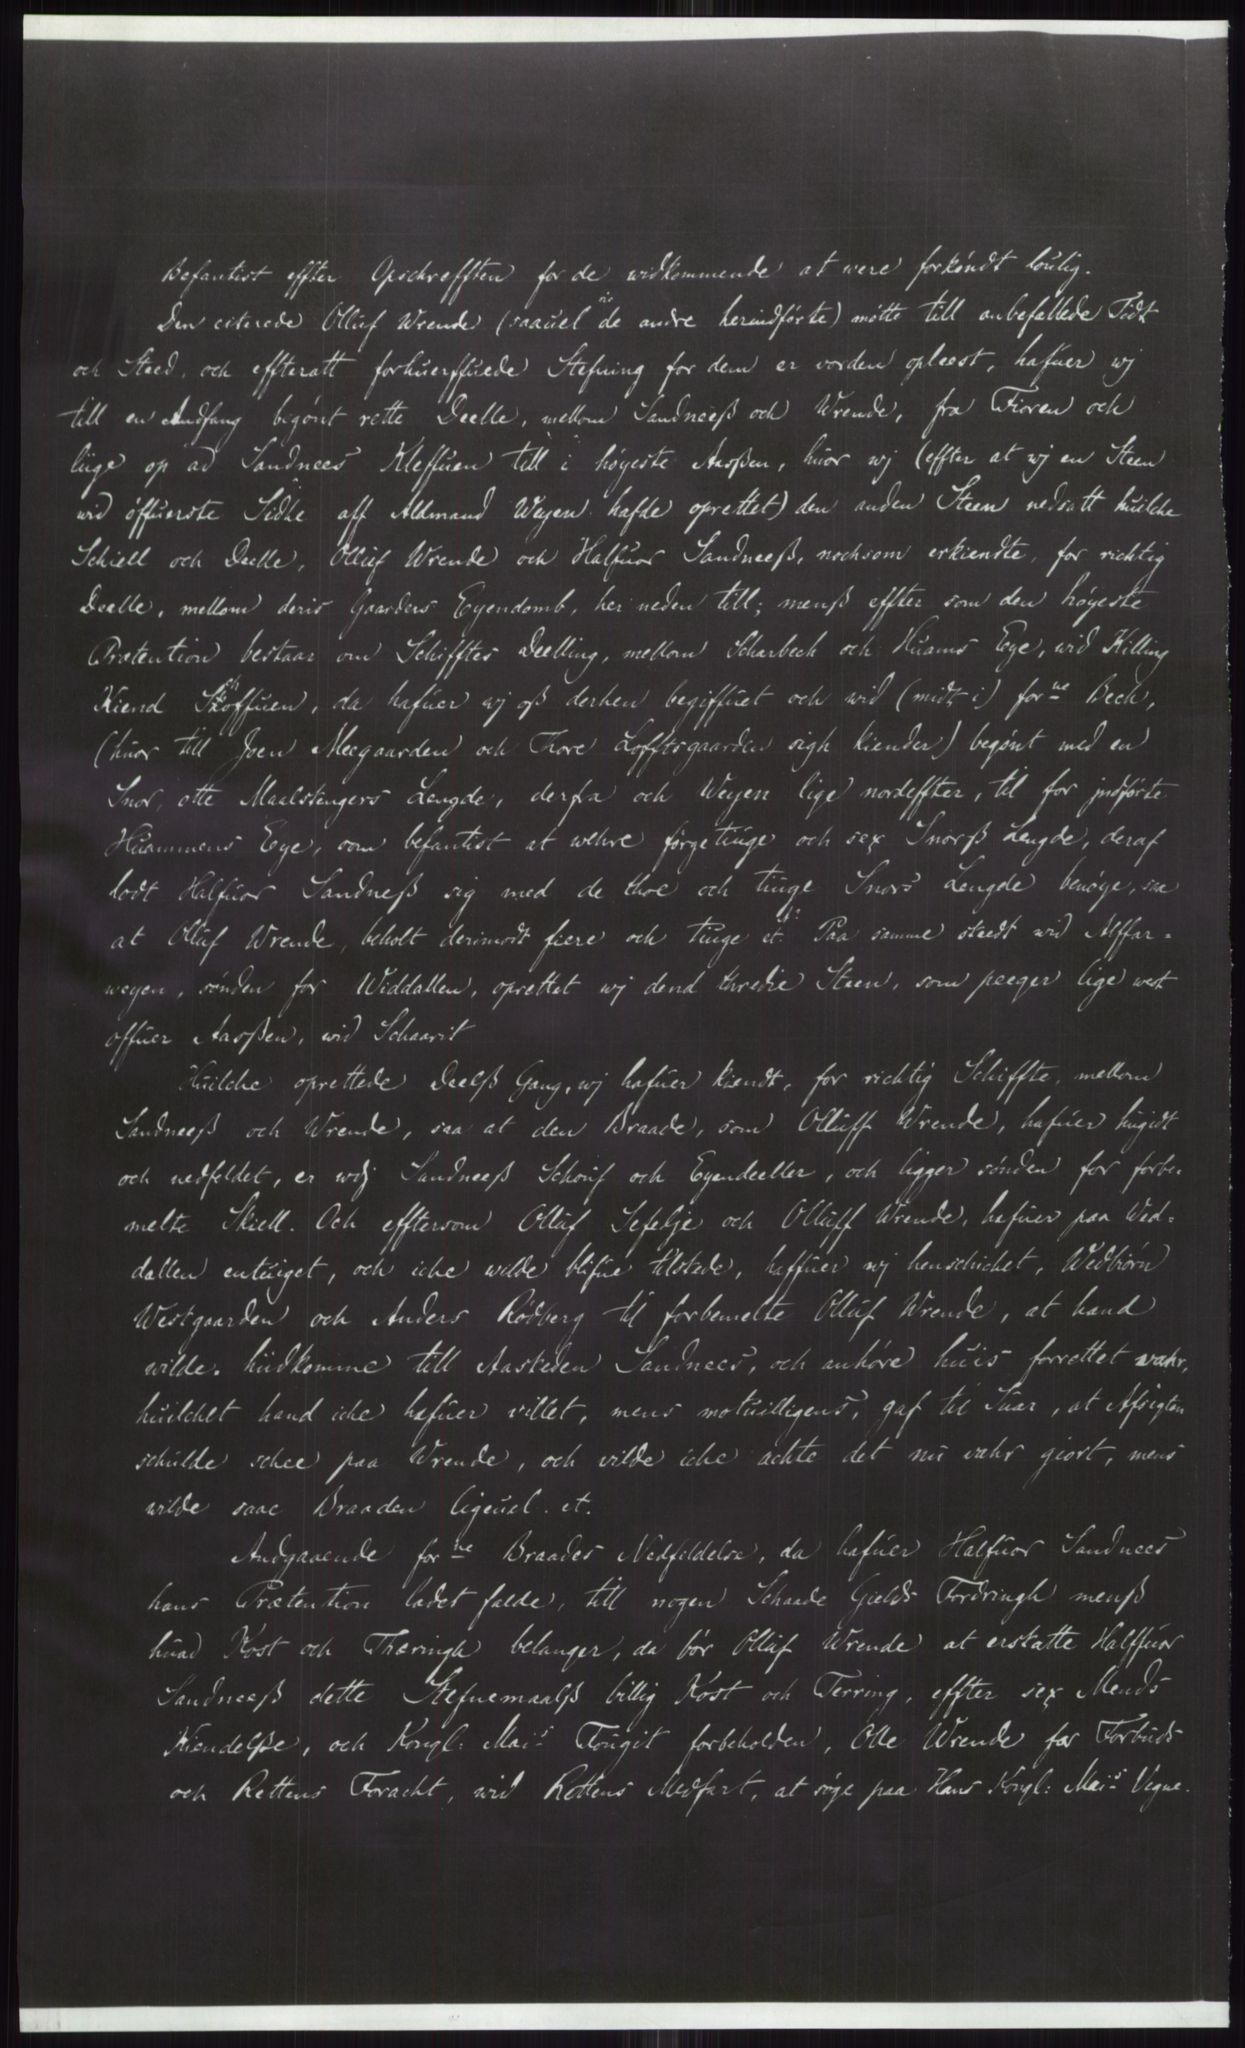 Befantist effter Opschrefften for de widkommende at were forkøndt loulig.
Den citerede Olluf Wrende (saauel de andre herindførte) møtte till anbefallede Tidt
och Steed, och effteratt forhuerffuede Stefning for dem er vorden opleest, hafuer wj
till en Andfang begønt rette Deelle, mellom Sandneeß och Wrende, fra Fioren och
liige op ad Sandnees Kleffuen till i høyeste Aaßen, huor wj (effter at wj en Steen
wid øffuerste Sidhe aff Aldmand Weyen hafde oprettet) den anden Steen nedsatt huilche
Schiell och Deelle, Olluf Wrende och Halfuor Sandneeß, nochsom erkiendte, for richtig
Deelle, mellom deris Gaarders Eyendomb, her neden till; menß effter som den høyeste
Prætention bestaar om Schifftes Deelling, mellom Scharbech och Huams Eye, wid Killing
Kiend Skøffuen, da hafuer wj oß derhen begiffuet och wid (midt i) forne Bech,
(huor till Joen Meegaarden och Tore Lofftsgaarden sigh kiender) begønt med en
Snor, otte Maalstengers Lengde, derfra och Weyen lige nordeffter, til for jndførte
Huammens Eye, som befantist at wehre førgetiuge och sex Snorß Lengde, deraf
lodt Halfuor Sandneß sig med de thoe och tiuge Snors Lengde benøye, saa
at Olluf Wrende, beholt derimodt fiere och tiuge et: Paa samme steedt wid Alffar=
weyen, sønden for Widdallen, oprettet wj dend thredie Steen, som peeger lige west
offuer Aaßen, wid Schaarit
Huilche oprettede Deelß Gang, wj hafuer kiendt, for richtig Schiffte, mellom
Sandneeß och Wrende, saa at den Braade, som Olluff Wrende, hafuer hugidt
och nedfeldet, er wdj Sandneeß Schouf och Eyendeeller, och ligger sønden for forbe=
melte Skiell. Och efftersom Olluf Sefelje och Olluff Wrende, hafuer paa Wed=
dallen entuiget, och iche wilde blifue tilstede, haffuer wj henschichet, Wedbiørn
Westgaarden och Anders Rødberg til forbemelte Olluf Wrende, at hand
wilde hiidkomme till Aasteden Sandnees, och anhøre huis forrettet wahr,
huilchet hand iche hafuer villet, mens motuilligens, gaf til Suar, at Afsigten
schulde schee paa Wrende, och vilde iche achte det nu wahr giort, mens
wilde saae Braaden ligeuel. et.
Andgaaende forne Braades Nedfeldelse, da hafuer Halfuor Sandnees
hans Prætention ladet falde, till nogen Schaade Gields Fordringh menß
huad Kost och Thæringh belanger, da bør Olluf Wrende at erstatte Halffuor
Sandneeß dette Stefnemaalß billig Kost och Terring, effter sex Mends
Kiendelße, och Kongl: Mais Fougit forbeholden, Olle Wrende for Forbuds
och Rettens Foracht, wid Rettens Medfart, at søge paa Hans Kongl: Mais Vegne.